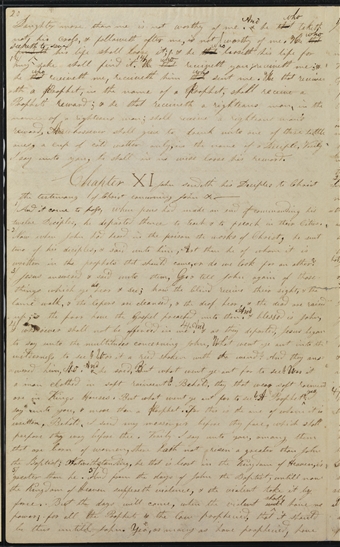 22
Daughter more than me is not worthy of me. & he who taketh
not his cross, & followeth after me, is not worthy of me. He who
seeketh to save his life shall loose it, & he who looseth his life for
my sake shall find it. He who receiveth you receiveth me; &
he who receiveth me, receiveth him who sent me. He that receiv
eth a Prophet, in the name of a Prophet, shall receive a
Prophets reward; & he that receiveth a righteous man, in the
name of a righteous man, shall receive a righteous man's
reward, And whosoever shall give to drink unto one of these little
ones, a cup of cold water only, in the name of a deciple, Verily
I say unto you, he shall in no wise loose his reward.
Chapter XI John sendeth his Deciples to Christ
the testimony of Christ concerning John &c
And it came to pass, when Jesus had made an end of commanding his
twelve Deciples, he departed thence to teach & to preach in their cities,
Now when John had heard in the prison the works of Christ, he sent
two of his deciples, & said unto him, Art thou he of whom it is
written in the prophets that should come, or do we look for another?
Jesus answered & said unto them, Go & tell John again of those
things which ye do hear & see; how the blind receive their sight, & the
lame walk, & the lepers are cleansed, & the deaf hear, & the dead are raised
up, & the poor have the Gospel preached unto them. And blessed is John, &
whosoever shall not be offended in me. And as they departed, Jesus began
to say unto the multitudes concerning John, What went ye out into the
wilderness to see? Was it a reed shaken with the wind? And they ans
wered him, No. And he said, But what went ye out for to see? Was it
a man clothed in soft raiment? Behold, they that wear soft raiment
are in Kings Houses. But what went ye out for to see? A Prophet? yea I
say unto you, & more than a Prophet. For this is the one of whom it is
written, Behold, I send my messenger before thy face, which shall
prepare thy way before thee. Verily I say unto you, among them
that are born of women, there hath not risen a greater than John
the Baptist; Notwithstanding, he that is least in the Kingdom of Heaven, is
greater than he. And from the days of John the Baptist, until now
the Kingdom of Heaven suffereth violence, & the violent take it by
force. But the days will come, when the violent shall have no
power; for all the Prophets & the Law prophesied, that it should
be thus until John. Yea, as many as have prophesied, have